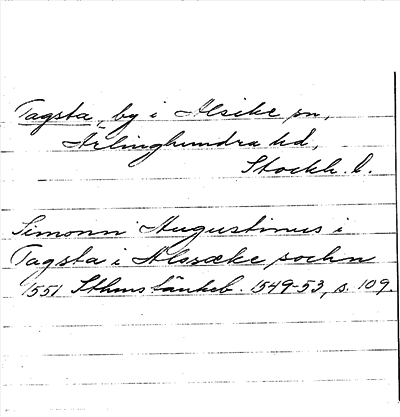 Tagsta, by i Alsike sn,
Ärlinghundra hd,
Stockh. l.
Simonn Augustinus i
Tagsta i Alszæke sochn
1551 Sthms tänkeb. 1549-53, s. 109.